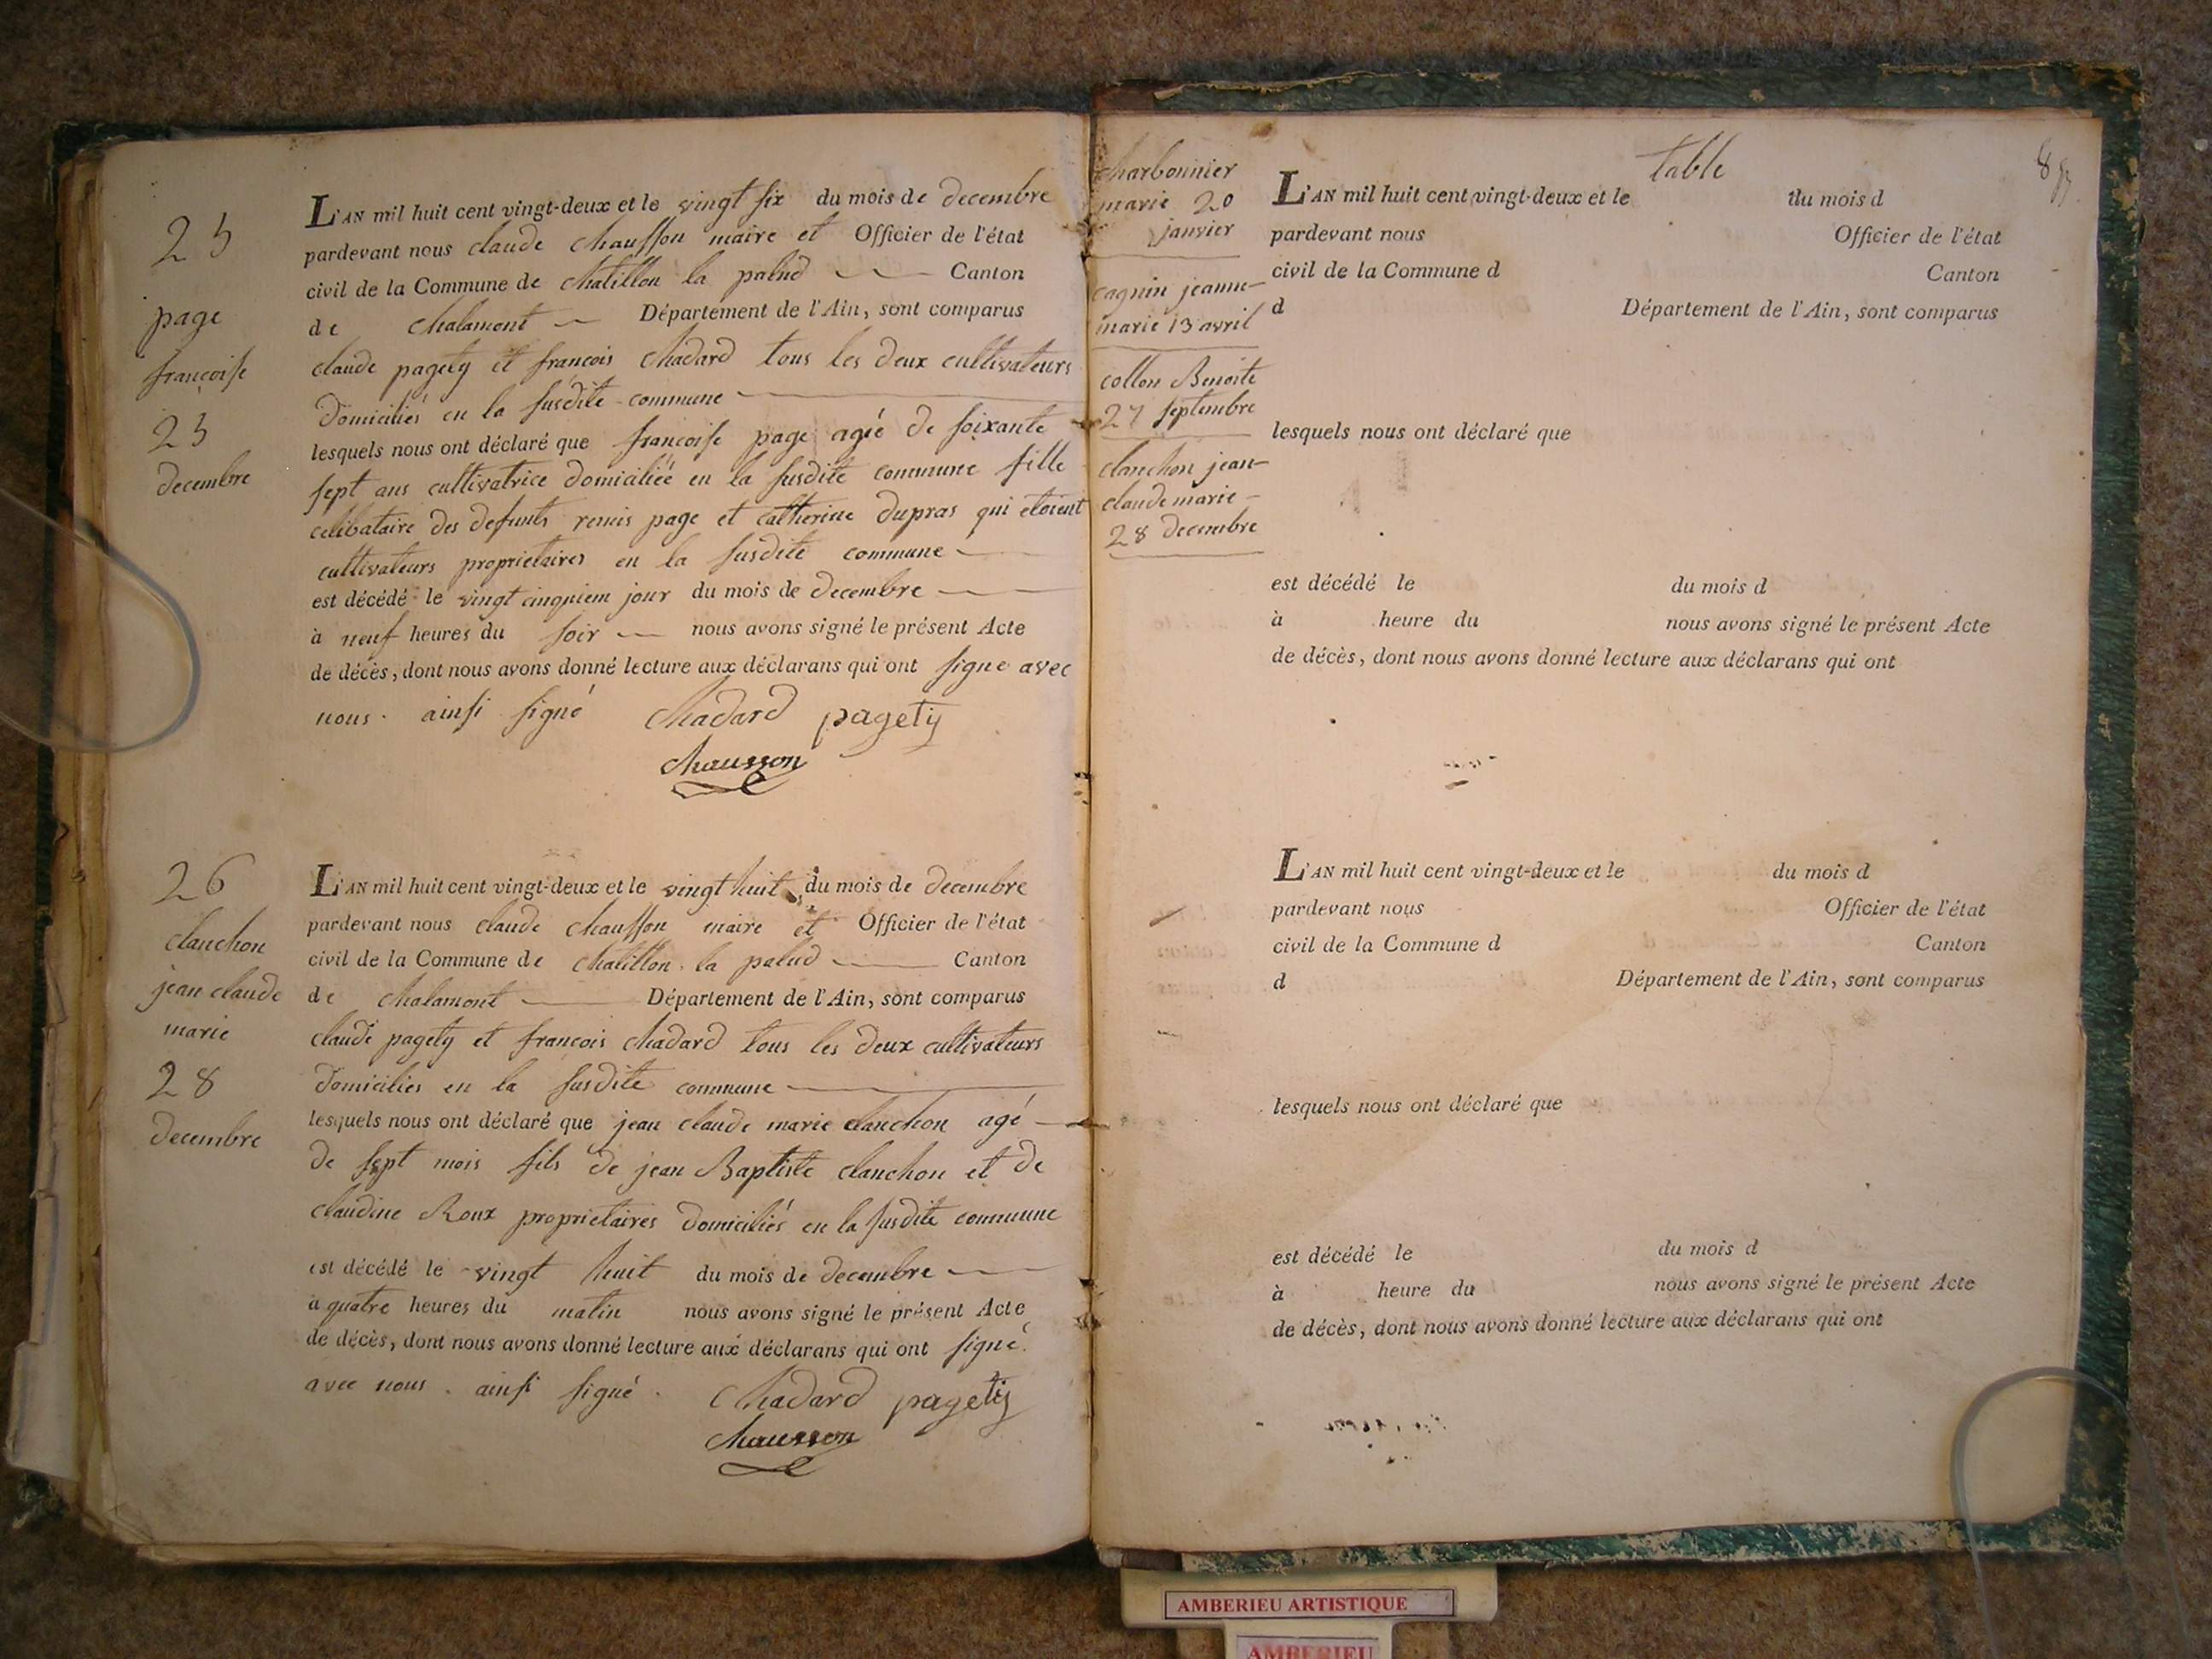 25
page
françoise
25
decembre
L'AN mil huit cent vingt-deux et le vingt six du mois de decembre
pardevant nous claude chausson maire et Officier de l'état
civil de la Commune de chatillon la palud Canton
de chalamont Département de l'Ain, sont comparus
claude pagety et francois chadard tous les deux cultivateurs
domiciliés en la susdite commune
lesquels nous ont déclaré que françoise page agée de soixante
sept ans cultivatrice domiciliée en la susdite commune fille
celibataire des defunts remis page et catherine dupras qui etoient
cultivateurs proprietaires en la susdite commune
est décédé le vingt cinquiem jour du mois de decembre
à neuf heures du soir nous avons signé le présent Acte
de décès, dont nous avons donné lecture aux déclarans qui ont signe avec
nous. ainsi signé chadard pagety
chausson
26
clanchon
jean claude
marie
28
decembre
L'AN mil huit cent vingt-deux et le vingt huit du mois de decembre
pardevant nous claude chausson maire et Officier de l'état
civil de la Commune de chatillon la palud Canton
de chalamont Département de l'Ain, sont comparus
claude pagety et francois chadard tous les deux cultivateurs
domiciliés en la susdite commune
lesquels nous ont déclaré que jean claude marie clanchon agé
de sept mois fils de jean Baptiste clanchon et de
claudine Roux proprietaires domiciliés en la susdite commune
est décédé le vingt huit du mois de decembre
à quatre heures du matin nous avons signé le présent Acte
de décès, dont nous avons donné lecture aux déclarans qui ont signé
avec nous. ainsi signé. chadard pagety
chausson
table
charbonnier
marie 20
janvier
cagnin jeanne-
marie 13 avril
collon Benoite
27 septembre
clanchon jean-
claude marie-
28 decembre
L'AN mil huit cent vingt-deux et le du mois d
pardevant nous Officier de l'état
civil de la Commune d Canton
d Département de l'Ain, sont comparus
lesquels nous ont déclaré que
est décédé le du mois d
à heure du nous avons signé le présent Acte
de décès, dont nous avons donné lecture aux déclarans qui ont
L'AN mil huit cent vingt-deux et le du mois d
pardevant nous Officier de l'état
civil de la Commune d Canton
d Département de l'Ain, sont comparus
lesquels nous ont déclaré que
est décédé le du mois d
à heure du nous avons signé le présent Acte
de décès, dont nous avons donné lecture aux déclarans qui ont
AMBERIEU ARTISTIQUE
AMBERIEU